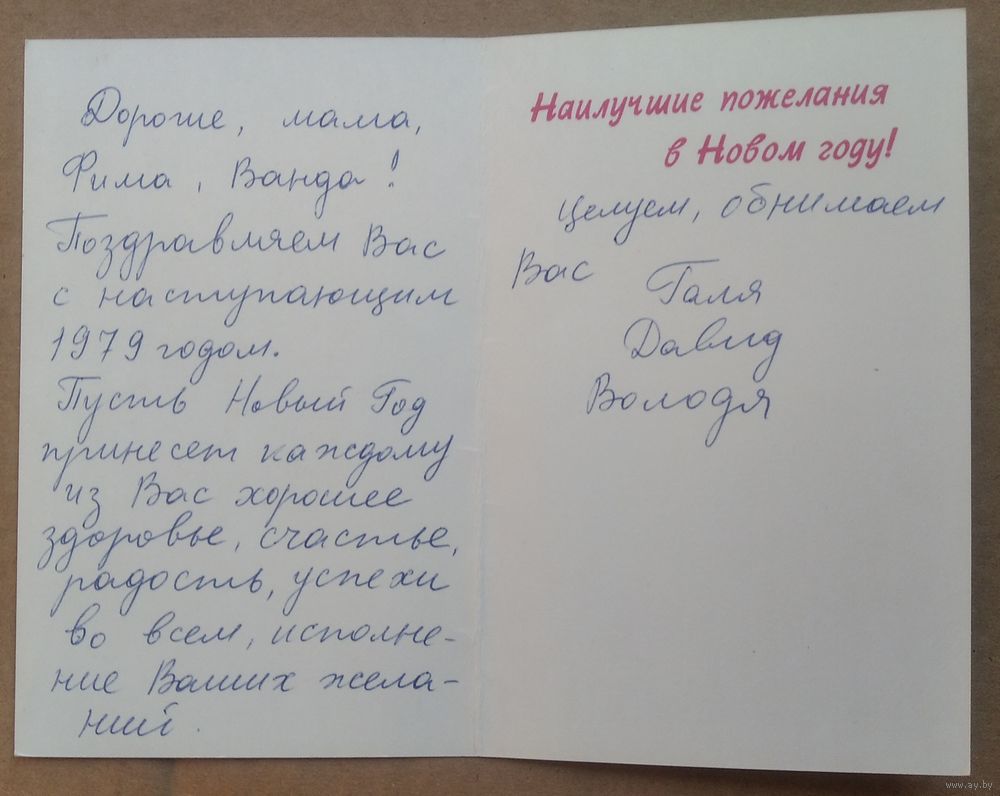 Дорогие, мама,
Фима, Ванда!
Поздравляем Вас
с наступающим
1979 годом.
Пусть Новый Год
принесет каждому
из Вас хорошее
здоровье, счастье,
радость, успехи
во всем, исполне-
ние Ваших жела-
ний.
Наилучшие пожелания
в Новом году!
Целуем, обнимаем
Вас
Галя
Давид
Володя
www.ay.by